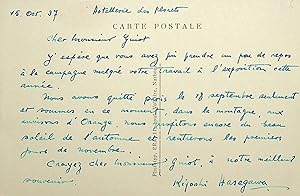 16 Oct. 37 Hostellerie des Florets
CARTE POSTALE
Cher Monsieur Guiot
J'espère que vous avez pu prendre un peu de repos
à la campagne malgré votre travail à l'exposition cette
année.
Nous avons quitté Paris le 18 septembre seulement
et sommes en ce moment dans la montagne, aux
environs d'Orange. Nous profitons encore du beau
soleil de l'automne rentrerons les premiers
jours de novembre.
Croyez cher monsieur Guiot, à notre meilleur
souvenir.
Kiyoshi Hasegawa